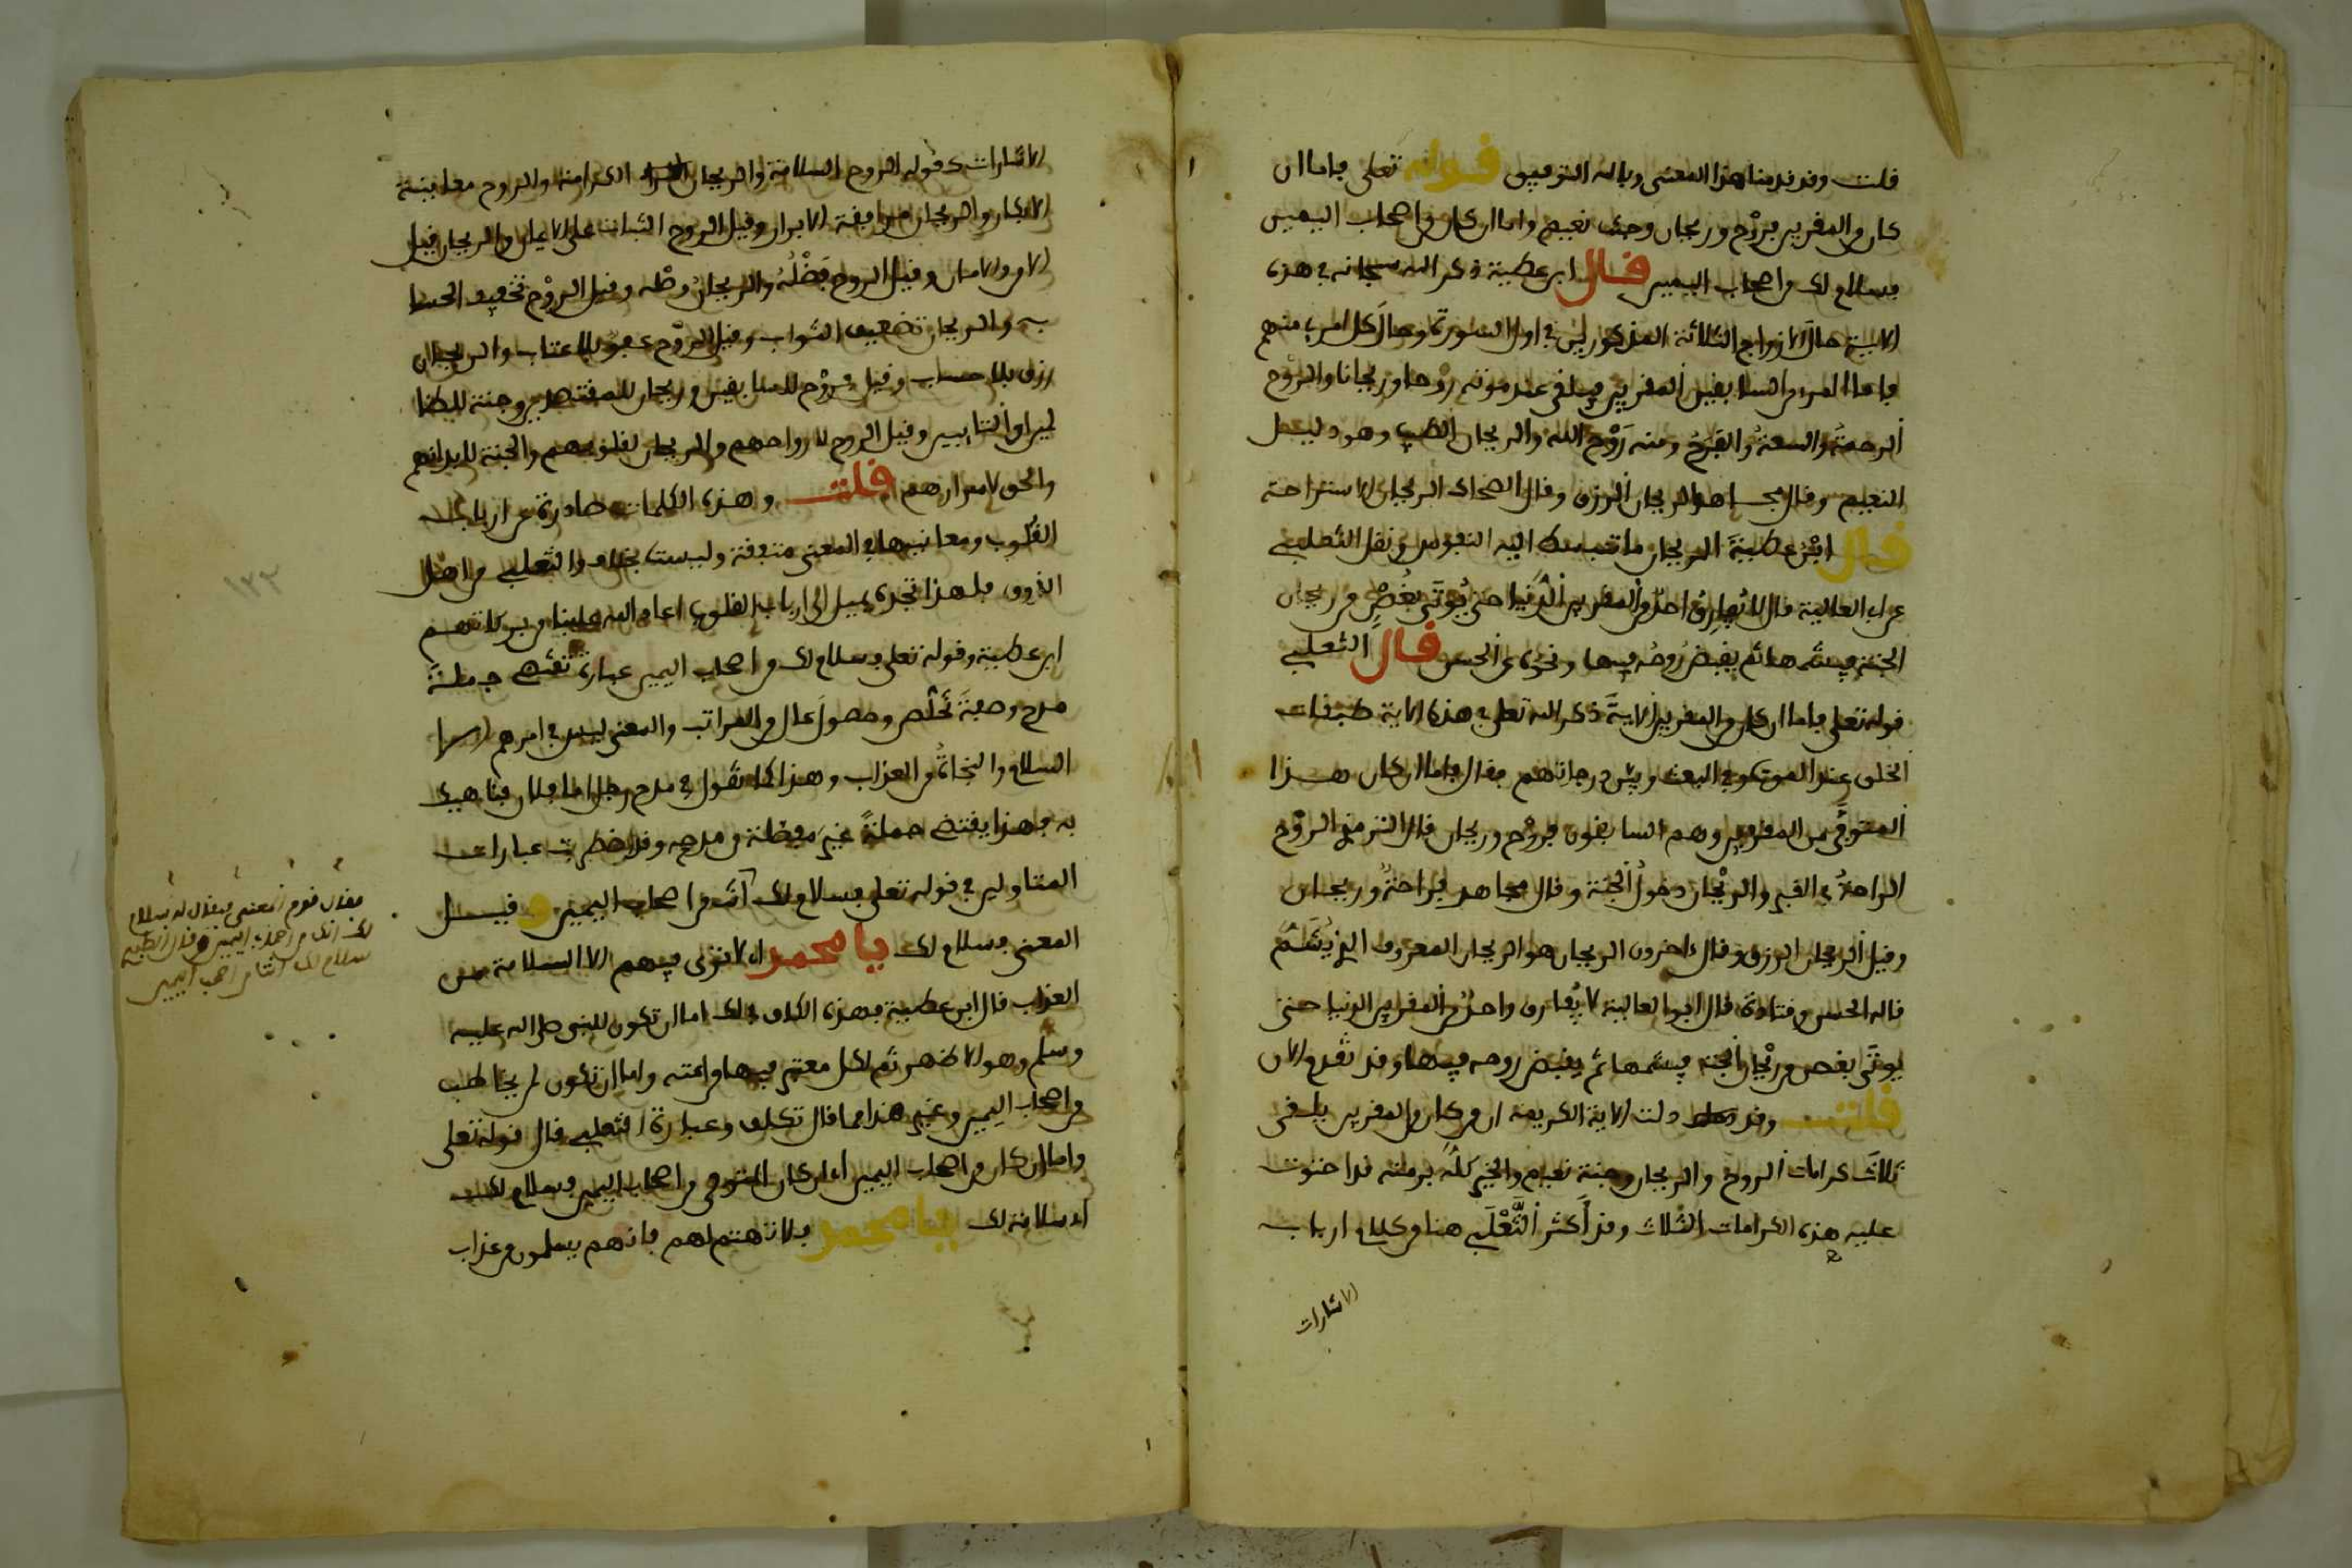 قلت وقد قدمنا هذا المعنى وبالله التوفيق قوله تعلى فاما ان
كان من المقربين فروح وريحان وجنت نعيم واما ان كان من اصحاب اليمين
فسلام لك من اصحاب اليمين قال ابن عطية ذكر الله سبحانه في هذه
الاية حال الازواج الثلاثة المذكورين في اول السورة وحال كل امرء منهم
فاما المرء من السابقين المقربين فيلقى عند موته روحا وريحانا والروح
الرحمة والسعة والفرح ومنه روح الله والريحان الطيب وهو دليل
النعيم وقال مجاهد الريحان الرزق وقال الضحاك الريحان الاستراحة
قال ابن عطية الريحان ما تنبسط اليه النفوس ونقل الثعلبي
عن ابي العالية قال لا يفارق احد من المقربين الدنيا حتى يوتى بغصن من ريحان
الجنة فيشمه ثم يقبض روحه فيها ونحوه عن الحسن قال الثعلبي
قوله تعلى فاما ان كان من المقربين الاية ذكر الله تعلى في هذه الاية طبقات
الخلق عند الموت وفي البعث وبين درجاتهم فقال فاما ان كان هذا
المتوفى من المقربين وهم السابقون فروح وريحان قال الترمذي الروح
الراحة في القبر والريحان دخول الجنة وقال مجاهد فراحة وريحان
وقيل الريحان الرزق وقال ءاخرون الريحان هو الريحان المعروف الذي يشم
قاله الحسن وقتادة قال ابو العالية لا يفارق واحد من المقربين الدنيا حتى
يوتى بغصن من ريحان الجنة فيشمها ثم يقبض روحه فيها وقد تقدم الان
قلت وقد دلت الاية الكريمة ان من كان من المقربين يلقى
ثلاث كرامات الروح والريحان وجنة نعيم والخير كله برمته قد احتوت
عليه هذه الكرامات الثلاث وقد اكثر الثعلبي هنا من كلام ارباب
الاشارات
الاشارات كقوله الروح السلامة والريحان الكرامة والروح معاينة
الابكار والريحان مرافقة الابرار وقيل الروح الثبات على الايمان والريحان نيل
الامن والامان وقيل الروح فضله والريحان وصله وقيل الروح تخفيف الحسا
ب والريحان تضعيف الثواب وقيل الروح عفو بلا عتاب والريحان
رزق بلا حساب وقيل فروح للسابقين وريحان للمقتصدين وجنة للطا
لبين او التايبين وقيل الروح لارواحهم والريحان لقلوبهم والجنة لابدانهم
والحق لاسرارهم قلت وهذه الكلمات صادرة عن ارباب
القلوب ومعانيها في المعنى متفقة وليست بخلاف والثعلبي من اهل
الذوق فلهذا تجده يميل الى ارباب القلوب اعاد الله علينا من بركاتهم
ابن عطية وقوله تعلى فسلام لك من اصحاب اليمين عبارة تقتضي جملة
مدح وصفة تخلص وحصول عال من المراتب والمعنى ليس في امرهم الا
السلام والنجاة من العذاب وهذا كما تقول في مدح رجل اما فلان فناهيك
به فهذا يقتضي جملة غير مفصلة من مدحه وقد اضطربت عبارات
المتاولين في قوله تعلى فسلام لك انك من اصحاب اليمين وقيل
المعنى فسلام لك يا محمد اي لا ترى فيهم الا السلامة من
العذاب قال ابن عطية فهذه الكاف في لك اما ان تكون للنبي صلى الله عليه
وسلم وهو الاظهر ثم لكل معتبر فيها من امته واما ان تكون لمن يخاطب
من اصحاب اليمين وغير هذا مما قال تكلف وعبارة الثعلبي قال قوله تعلى
واما ان كان من اصحاب اليمين اي ان كان المتوفى من اصحاب اليمين فسلام لك
اي سلامة لك يا محمد فلا تهتم لهم فانهم يسلمون من عذاب
فقال قوم المعنى فيقال له سلام
لك انك من اصحاب اليمين وقال الطبري
سلام لك انت من اصحاب اليمين
١٢٣